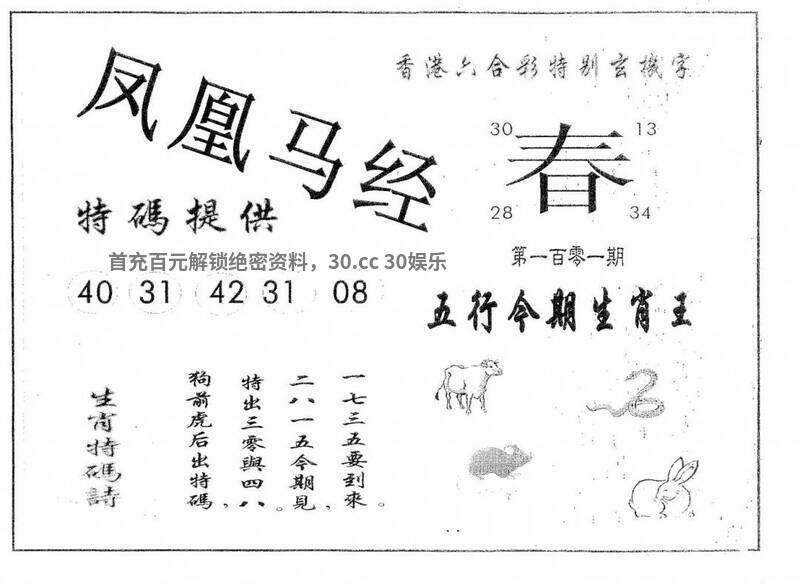 香港六合彩特别玄機字
凤凰马经
30 13
春
28 34
特碼提供
第一百零一期
首充百元解锁绝密资料，30.cc 30娱乐
40 31 42 31 08
五行今期生肖王
生肖特碼詩
一七三五要到來。
二八一五今期見，
特出三零與四八。
狗前虎后出特碼，